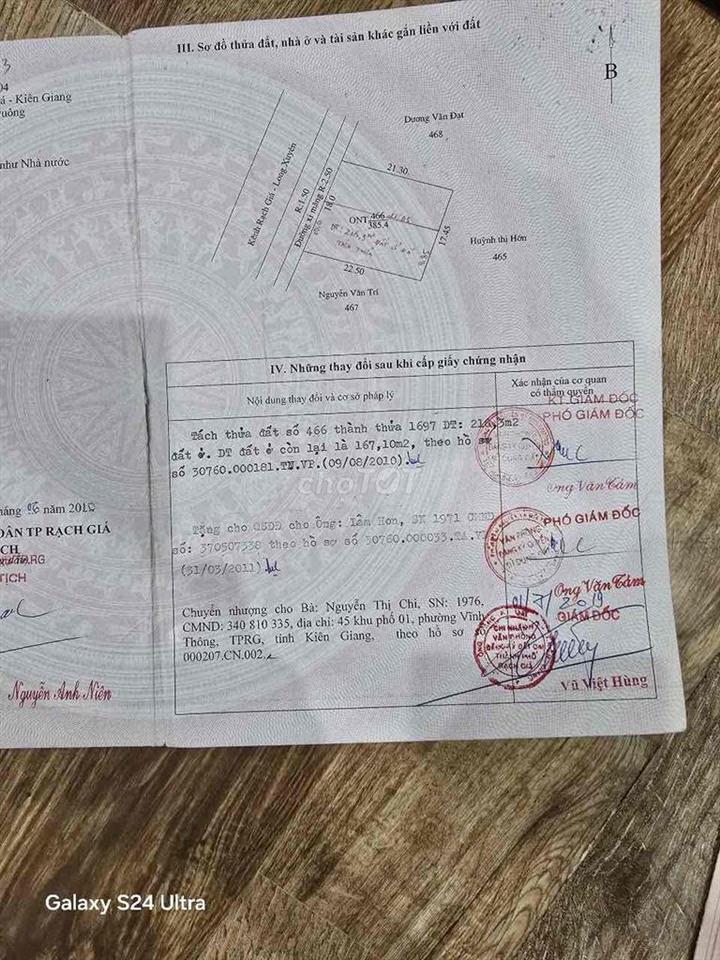 III. Sơ đồ thửa đất, nhà ở và tài sản khác gắn liền với đất
B
3
04
á - Kiên Giang
uông
như Nhà nước
Dương Văn Đạt
468
Kênh Rạch Giá - Long Xuyên
R:1.50
Đường xi măng R:2.50
18.0
21.30
ONT 466
385.4
17.45
9.85
22.50
Huỳnh thị Hón
465
Nguyễn Văn Trí
467
IV. Những thay đổi sau khi cấp giấy chứng nhận
Nội dung thay đổi và cơ sở pháp lý
Xác nhận của cơ quan
có thẩm quyền
Tách thửa đất số 466 thành thửa 1697 DT: 218,3m2
đất ở. DT đất ở còn lại là 167,10m2, theo hồ sơ
số 30760.000181.TN.VP.(09/08/2010).
KT GIÁM ĐỐC
PHÓ GIÁM ĐỐC
Ong Văn Tám
choTốt
Tặng cho QSDĐ cho Ông: Lâm Hon, SN 1971 CMND
số: 370507338 theo hồ sơ số 30760.000033.TA.
(31/03/2011).
PHÓ GIÁM ĐỐC
VĂN PHÒNG
ĐĂNG KÝ QUYỀN
SỬ DỤNG
Ong Văn Tám
Chuyển nhượng cho Bà: Nguyễn Thị Chi, SN: 1976,
CMND: 340 810 335, địa chỉ: 45 khu phố 01, phường Vĩnh
Thông, TPRG, tỉnh Kiên Giang, theo hồ sơ
000207.CN.002.
01/7/2019
GIÁM ĐỐC
CHI NHÁNH
VĂN PHÒNG
ĐĂNG KÝ ĐẤT ĐAI
THÀNH PHỐ
RẠCH GIÁ
Vũ Việt Hùng
háng 06 năm 2010
DÂN TP RẠCH GIÁ
ỊCH
TỊCH
Nguyễn Anh Niên
Galaxy S24 Ultra